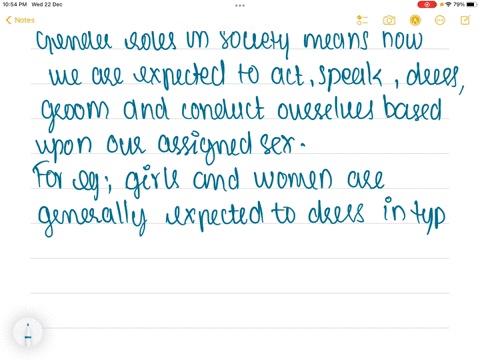 10:54 PM Wed 22 Dec
79%
Notes
Gender roles in society means how
we are expected to act, speak, dress,
groom and conduct ourselves based
upon our assigned sex.
For eg; girls and women are
generally expected to dress in typ